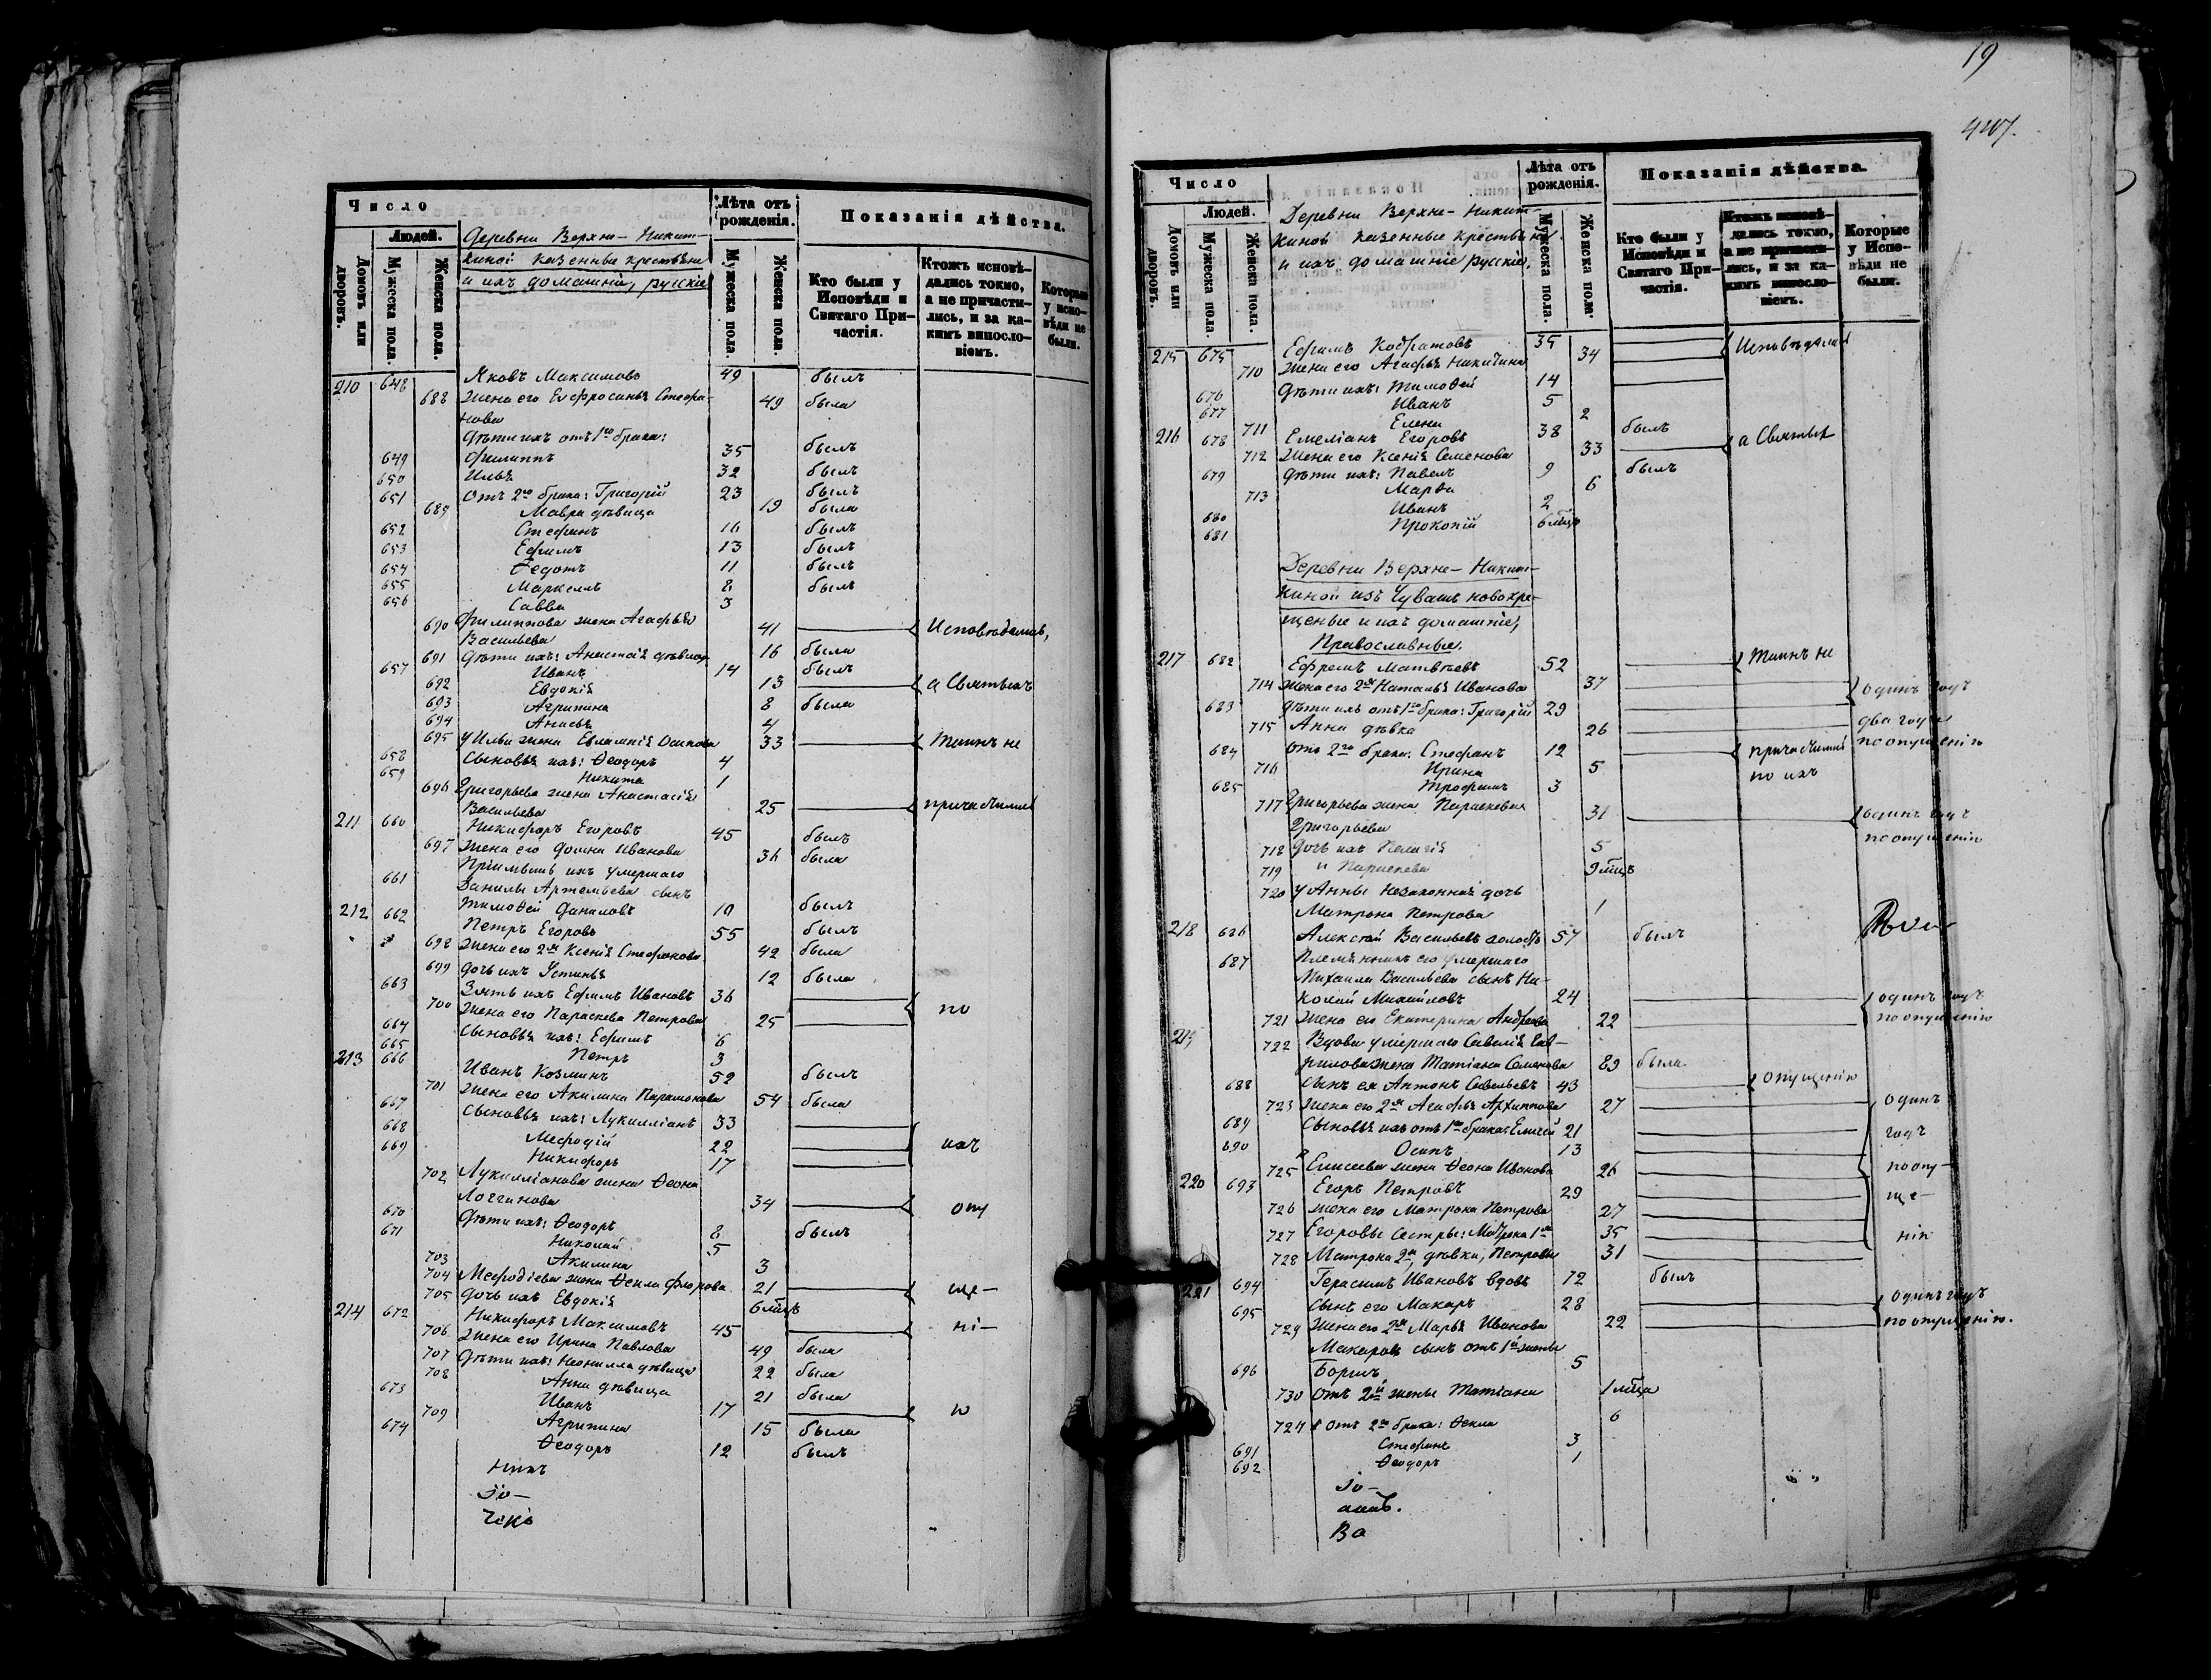 Число
Людей.
Домовъ или дворовъ.
Мужеска пола.
Женска пола.
Деревни Верхне-Никит-
киной казенные крестьяне
и ихъ домашніе, русскіе
Лѣта отъ рожденія.
Мужеска пола.
Женска пола.
Показанія дѣйства.
Кто были у Исповѣди и Святаго Причастія.
Ктожъ исповѣдались токмо, а не причастились, и за какимъ винословіемъ.
Которые у исповѣди не были.
210 648 Яковъ Максимовъ 49 былъ
688 Жена его Евфросинья Стефа- 49 была
нова
Дѣти ихъ отъ 1го брака:
649 Филиппъ 35 былъ
650 Илья 32 былъ
651 Отъ 2го брака: Григорій 23 былъ
689 Мавра дѣвица 19 была
652 Стефанъ 16 былъ
653 Ефимъ 13 былъ
654 Ѳедотъ 11 былъ
655 Маркеллъ 8 былъ
656 Савва 3
690 Филиппова жена Агафья 41 Исповѣдались,
Васильева
691 Дѣти ихъ: Анастасія дѣвица 16 была
657 Иванъ 14 былъ
692 Евдокія 13 а Святыхъ
693 Агрипина 8 была
694 Анисья 4
695 У Ильи жена Евлампія Осипова 33 Таинъ не
658 Сыновья ихъ: Ѳеодоръ 4
659 Никита 1
696 Григорьева жена Анастасія
Васильева 25 причастились
211 660 Никифоръ Егоровъ 45 былъ
697 Жена его Домна Иванова 36 была
Пріимышъ ихъ умершаго
661 Данилы Артемьева сынъ
Тимоѳей Даниловъ 19 былъ
212 662 Петръ Егоровъ 55 былъ
698 Жена его 2я Ксенія Стефанова 42 была
699 Дочь ихъ Устинья 12 была
663 Зять ихъ Ефимъ Ивановъ 36
700 Жена его Параскева Петрова 25 по
664 Сыновья ихъ: Ефимъ 6
665 Петръ 3
213 666 Иванъ Козминъ 52 былъ
701 Жена его Акилина Парамонова 54 была
667 Сыновья ихъ: Лукилліанъ 33
668 Меѳодій 22 ихъ
669 Никифоръ 17
702 Лукилліанова жена Ѳеона
Логгинова 34 опу
670 Дѣти ихъ: Ѳеодоръ 8 былъ
671 Николай 5
703 Акилина 3
704 Меѳодіева жена Ѳекла Флорова 21 ще-
705 Дочь ихъ Евдокія 6 мцъ
214 672 Никифоръ Максимовъ 45 ні-
706 Жена его Ирина Павлова 49 была
707 Дѣти ихъ: Неонилла дѣвица 22 была
708 Анна дѣвица 21 была
673 Иванъ 17 ю
709 Агрипина 15 была
674 Ѳеодоръ 12 былъ
19
Число
Людей.
Домовъ или дворовъ.
Мужеска пола.
Женска пола.
Деревни Верхне-Никит-
киной казенные крестьяне
и ихъ домашніе русскіе.
Лѣта отъ рожденія.
Мужеска пола.
Женска пола.
Показанія дѣйства.
Кто были у Исповѣди и Святаго Причастія.
Ктожъ исповѣдались токмо, а не причастились, и за какимъ винословіемъ.
Которые у Исповѣди не были.
215 675 Ефимъ Кодратовъ 35 Исповѣдались
710 Жена его Агафья Никитина 34
676 Дѣти ихъ: Тимоѳей 14
677 Иванъ 5
711 Елена 2
216 678 Емеліанъ Егоровъ 38 былъ
712 Жена его Ксенія Семенова 33 а Святыхъ
679 Дѣти ихъ: Павелъ 9 былъ
713 Марѳа 6
680 Иванъ 2
681 Прокопій 6 мцъ
Деревни Верхне-Никит-
киной изъ Чувашъ новокре-
щеные и ихъ домашніе,
Православные.
217 682 Ефремъ Матвѣевъ 52 Таинъ не
714 Жена его 2я Наталья Иванова 37 одинъ годъ
683 Дѣти ихъ отъ 1го брака: Григорій 29
715 Анна дѣвка 26 два года
684 отъ 2го брака: Стефанъ 12 причастились по опущенію
716 Ирина 5 по ихъ
685 Трофимъ 3
717 Григорьева жена Параскева 31 одинъ годъ
Григорьева по опущенію
718 Дочь ихъ Пелагія 5
719 и Параскева 9 мцъ
720 У Анны незаконная дочь
Матрона Петрова 1
218 686 Алексѣй Васильевъ холостъ 57 былъ
687 Племянникъ его умершаго
Михаила Васильева сынъ Ни-
колай Михайловъ 24 одинъ годъ
721 Жена его Екатерина Андреева 22 по опущенію
219 722 Вдова умершаго Савелія Гав-
рилова жена Татіана Семенова 89 была
688 Сынъ ея Антонъ Савельевъ 43 опущенію
723 Жена его 2я Агафья Архиппова 27 одинъ
689 Сыновья ихъ отъ 1го брака: Елисей 21
690 Осипъ 13 годъ
725 Елисеева жена Ѳеона Иванова 26 по опу-
220 693 Егоръ Петровъ 29 ще-
726 Жена его Матрона Петрова 27
727 Егоровы сестры: Матрона 1я 35 нію
728 Матрона 2я, дѣвки, Петровы 31
221 694 Герасимъ Ивановъ вдовъ 72 былъ
695 Сынъ его Макаръ 28 одинъ годъ
729 Жена его 2я Марья Иванова 22 по опущенію.
Макаровъ сынъ отъ 1й жены
696 Борисъ 5
730 Отъ 2й жены Татіана 1 мца
724 Отъ 2го брака: Ѳекла 6
691 Стефанъ 3
692 Ѳеодоръ 1
Іо-
аннъ.
Ва